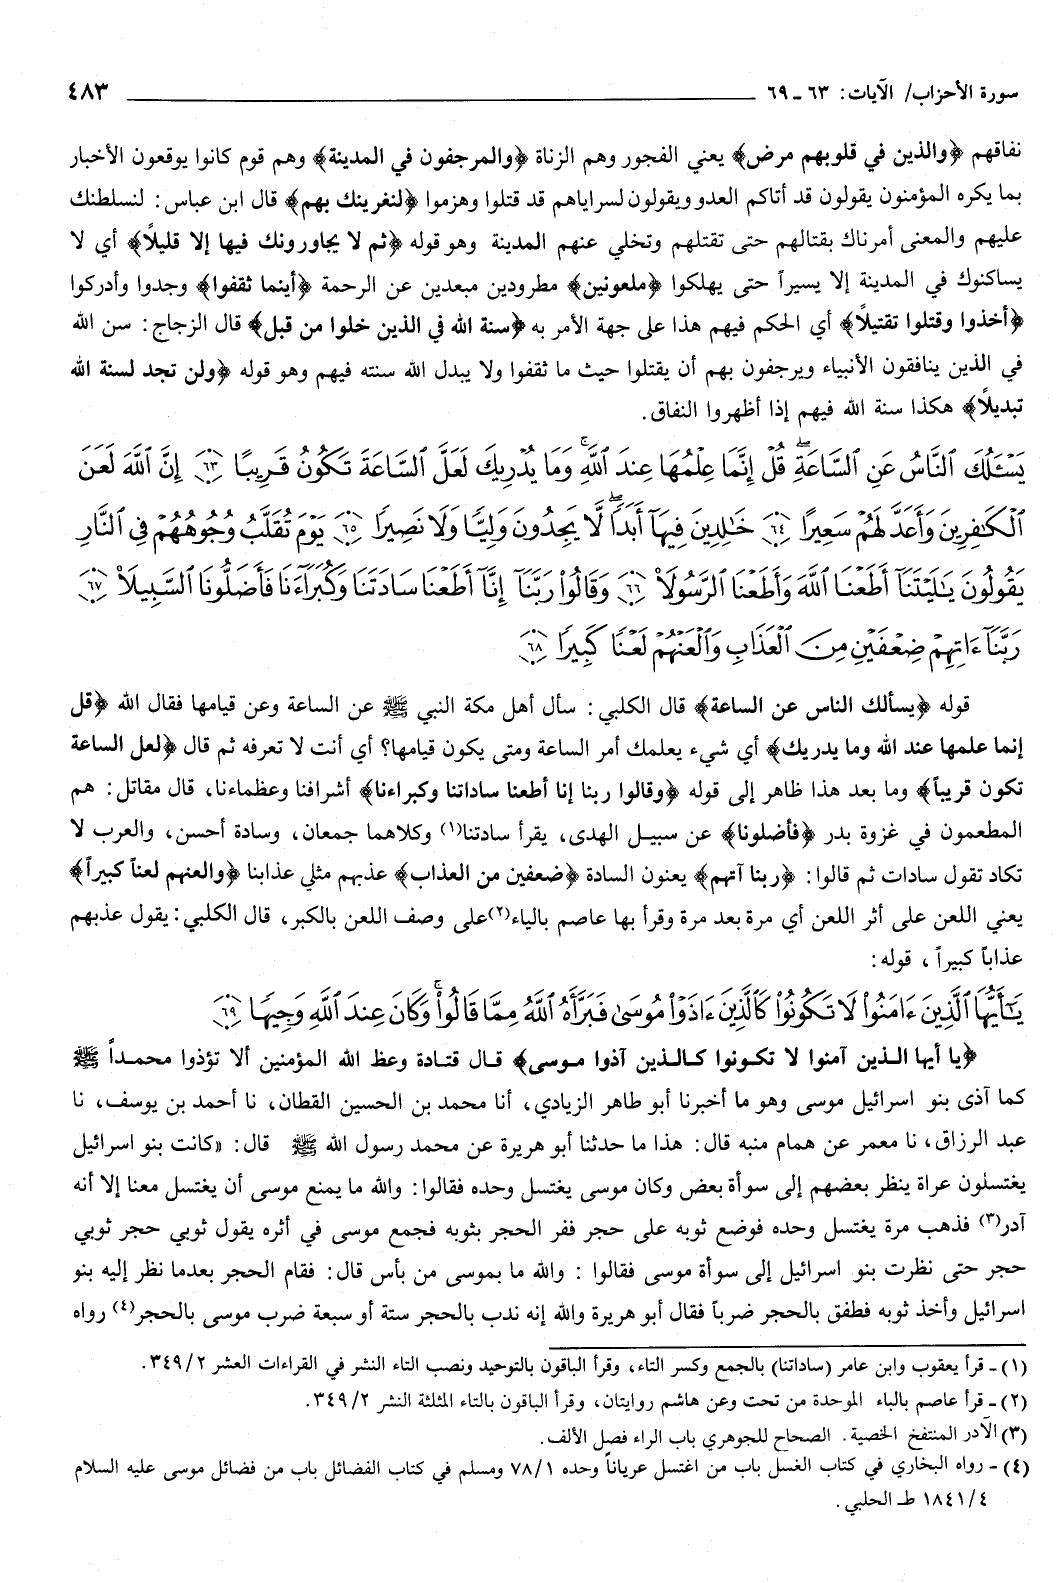 سورة الأحزاب/ الآيات: ٦٣ ـ ٦٩ ٤٨٣
نفاقهم ﴿والذين في قلوبهم مرض﴾ يعني الفجور وهم الزناة ﴿والمرجفون في المدينة﴾ وهم قوم كانوا يوقعون الأخبار
بما يكره المؤمنون يقولون قد أتاكم العدو ويقولون لسراياهم قد قتلوا وهزموا ﴿لنغرينك بهم﴾ قال ابن عباس: لنسلطنك
عليهم والمعنى أمرناك بقتالهم حتى تقتلهم وتخلي عنهم المدينة وهو قوله ﴿ثم لا يجاورونك فيها إلا قليلاً﴾ أي لا
يساكنوك في المدينة إلا يسيراً حتى يهلكوا ﴿ملعونين﴾ مطرودين مبعدين عن الرحمة ﴿أينما ثقفوا﴾ وجدوا وأدركوا
﴿أخذوا وقتلوا تقتيلاً﴾ أي الحكم فيهم هذا على جهة الأمر به ﴿سنة الله في الذين خلوا من قبل﴾ قال الزجاج: سن الله
في الذين ينافقون الأنبياء ويرجفون بهم أن يقتلوا حيث ما ثقفوا ولا يبدل الله سنته فيهم وهو قوله ﴿ولن تجد لسنة الله
تبديلاً﴾ هكذا سنة الله فيهم إذا أظهروا النفاق.
يَسْـَٔلُكَ ٱلنَّاسُ عَنِ ٱلسَّاعَةِۖ قُلْ إِنَّمَا عِلْمُهَا عِندَ ٱللَّهِۚ وَمَا يُدْرِيكَ لَعَلَّ ٱلسَّاعَةَ تَكُونُ قَرِيبًا ٦٣ إِنَّ ٱللَّهَ لَعَنَ
ٱلْكَـٰفِرِينَ وَأَعَدَّ لَهُمْ سَعِيرًا ٦٤ خَـٰلِدِينَ فِيهَآ أَبَدًاۖ لَّا يَجِدُونَ وَلِيًّا وَلَا نَصِيرًا ٦٥ يَوْمَ تُقَلَّبُ وُجُوهُهُمْ فِى ٱلنَّارِ
يَقُولُونَ يَـٰلَيْتَنَآ أَطَعْنَا ٱللَّهَ وَأَطَعْنَا ٱلرَّسُولَا۠ ٦٦ وَقَالُوا۟ رَبَّنَآ إِنَّآ أَطَعْنَا سَادَتَنَا وَكُبَرَآءَنَا فَأَضَلُّونَا ٱلسَّبِيلَا۠ ٦٧
رَبَّنَآ ءَاتِهِمْ ضِعْفَيْنِ مِنَ ٱلْعَذَابِ وَٱلْعَنْهُمْ لَعْنًا كَبِيرًا ٦٨
قوله ﴿يسألك الناس عن الساعة﴾ قال الكلبي: سأل أهل مكة النبي ﷺ عن الساعة وعن قيامها فقال الله ﴿قل
إنما علمها عند الله وما يدريك﴾ أي شيء يعلمك أمر الساعة ومتى يكون قيامها؟ أي أنت لا تعرفه ثم قال ﴿لعل الساعة
تكون قريباً﴾ وما بعد هذا ظاهر إلى قوله ﴿وقالوا ربنا إنا أطعنا ساداتنا وكبراءنا﴾ أشرافنا وعظماءنا، قال مقاتل: هم
المطعمون في غزوة بدر ﴿فأضلونا﴾ عن سبيل الهدى، يقرأ سادتنا(١) وكلاهما جمعان، وسادة أحسن، والعرب لا
تكاد تقول سادات ثم قالوا: ﴿ربنا آتهم﴾ يعنون السادة ﴿ضعفين من العذاب﴾ عذبهم مثلي عذابنا ﴿والعنهم لعناً كبيراً﴾
يعني اللعن على أثر اللعن أي مرة بعد مرة وقرأ بها عاصم بالباء(٢)على وصف اللعن بالكبر، قال الكلبي: يقول عذبهم
عذاباً كبيراً، قوله:
يَـٰٓأَيُّهَا ٱلَّذِينَ ءَامَنُوا۟ لَا تَكُونُوا۟ كَٱلَّذِينَ ءَاذَوْا۟ مُوسَىٰ فَبَرَّأَهُ ٱللَّهُ مِمَّا قَالُوا۟ۚ وَكَانَ عِندَ ٱللَّهِ وَجِيهًا ٦٩
﴿يا أيها الذين آمنوا لا تكونوا كالذين آذوا موسى﴾ قال قتادة وعظ الله المؤمنين ألا تؤذوا محمداً ﷺ
كما آذى بنو اسرائيل موسى وهو ما أخبرنا أبو طاهر الزيادي، أنا محمد بن الحسين القطان، نا أحمد بن يوسف، نا
عبد الرزاق، نا معمر عن همام منبه قال: هذا ما حدثنا أبو هريرة عن محمد رسول الله ﷺ قال: «كانت بنو اسرائيل
يغتسلون عراة ينظر بعضهم إلى سوأة بعض وكان موسى يغتسل وحده فقالوا: والله ما يمنع موسى أن يغتسل معنا إلا أنه
آدر(٣) فذهب مرة يغتسل وحده فوضع ثوبه على حجر ففر الحجر بثوبه فجمع موسى في أثره يقول ثوبي حجر ثوبي
حجر حتى نظرت بنو اسرائيل إلى سوأة موسى فقالوا: والله ما بموسى من بأس قال: فقام الحجر بعدما نظر إليه بنو
اسرائيل وأخذ ثوبه فطفق بالحجر ضرباً فقال أبو هريرة والله إنه ندب بالحجر ستة أو سبعة ضرب موسى بالحجر(٤) رواه
(١) ـ قرأ يعقوب وابن عامر (ساداتنا) بالجمع وكسر التاء، وقرأ الباقون بالتوحيد ونصب التاء النشر في القراءات العشر ٣٤٩/٢.
(٢) ـ قرأ عاصم بالباء الموحدة من تحت وعن هاشم روايتان، وقرأ الباقون بالتاء المثلثة النشر ٣٤٩/٢.
(٣) الآدر المنتفخ الخصية. الصحاح للجوهري باب الراء فصل الألف.
(٤) ـ رواه البخاري في كتاب الغسل باب من اغتسل عرياناً وحده ٧٨/١ ومسلم في كتاب الفضائل باب من فضائل موسى عليه السلام
١٨٤١/٤ طـ الحلبي.